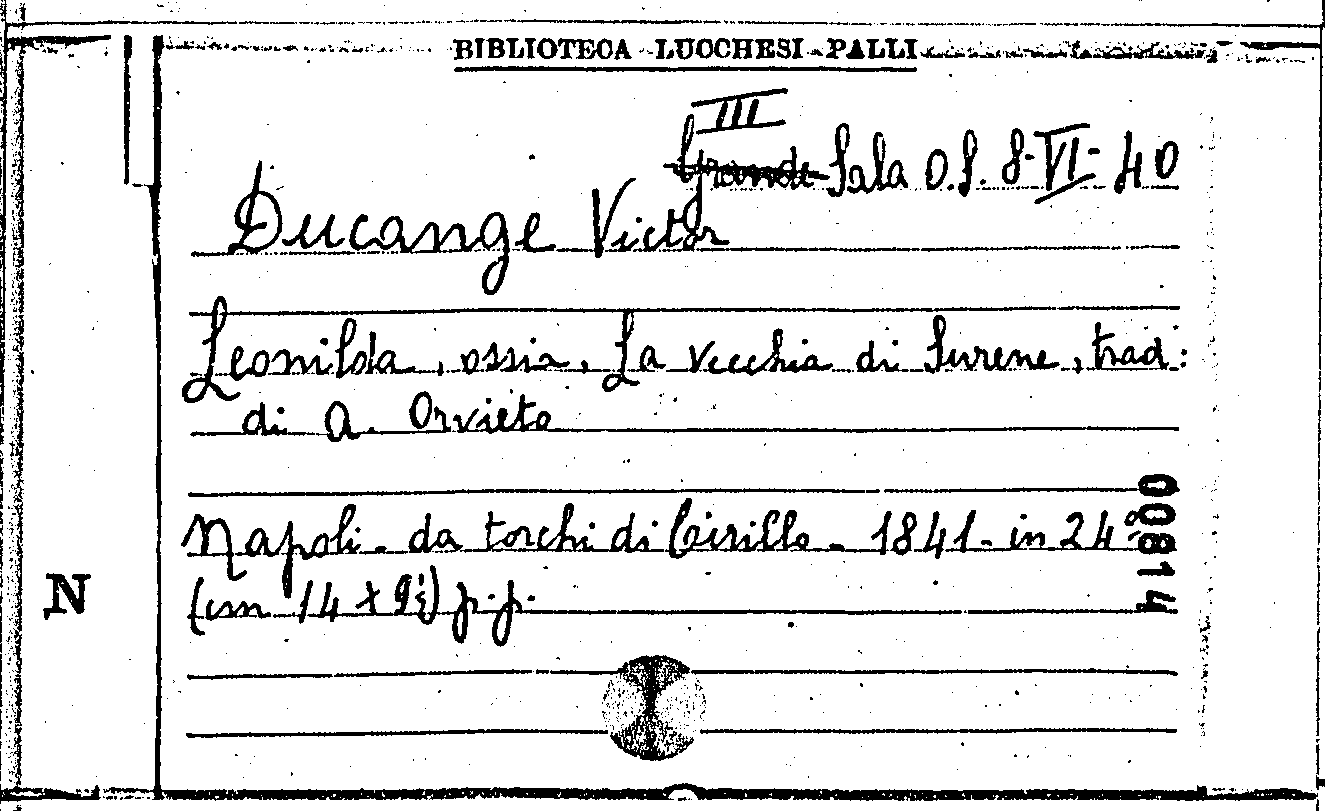 BIBLIOTECA LUCCHESI-PALLI
III
Grande Sala O.S. 8-VI-40
Ducange Victor
Leonilda, ossia, La vecchia di Surene, trad:
di A. Orvieto
Napoli - da torchi di Cirillo - 1841 - in 24º
(cm 14 x 9½) p.p.
00814
N